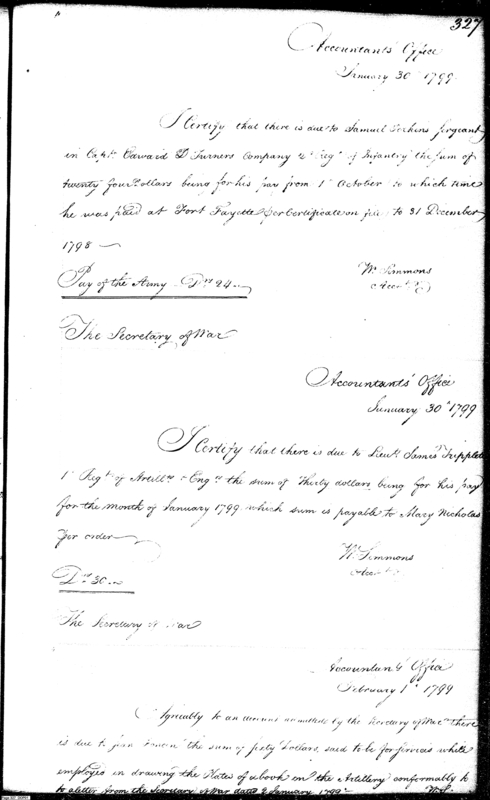 327
Accountants' Office
January 30th 1799
I Certify that there is due to Samuel Jerkins Sergeant
in Capt. Edward D Turners Company 2d Regt of Infantry the sum of
twenty four Dollars being for his pay from 1st October to which time
he was paid at Fort Fayette per Certificate on file to 31 December
1798
Pay of the Army Drs 24
Wm Simmons
Accont
The Secretary of War
Accountants' Office
January 30th 1799
I Certify that there is due to Lieut. James Tripplett
1st Regt of Artillr Engrs the sum of Thirty dollars being for his pay
for the month of January 1799 which sum is payable to Mary Nicholas
per order
Wm Simmons
Accont
Drs 30
The Secretary of War
Accountants Office
February 1st 1799
Agreeably to an account admitted by the Secretary of War there
is due to the sum of Dollars, said to be for services while
employed in drawing the Plates of a book on the Artillery conformably to
to a letter from the Secretary of War dated 2 January 1799